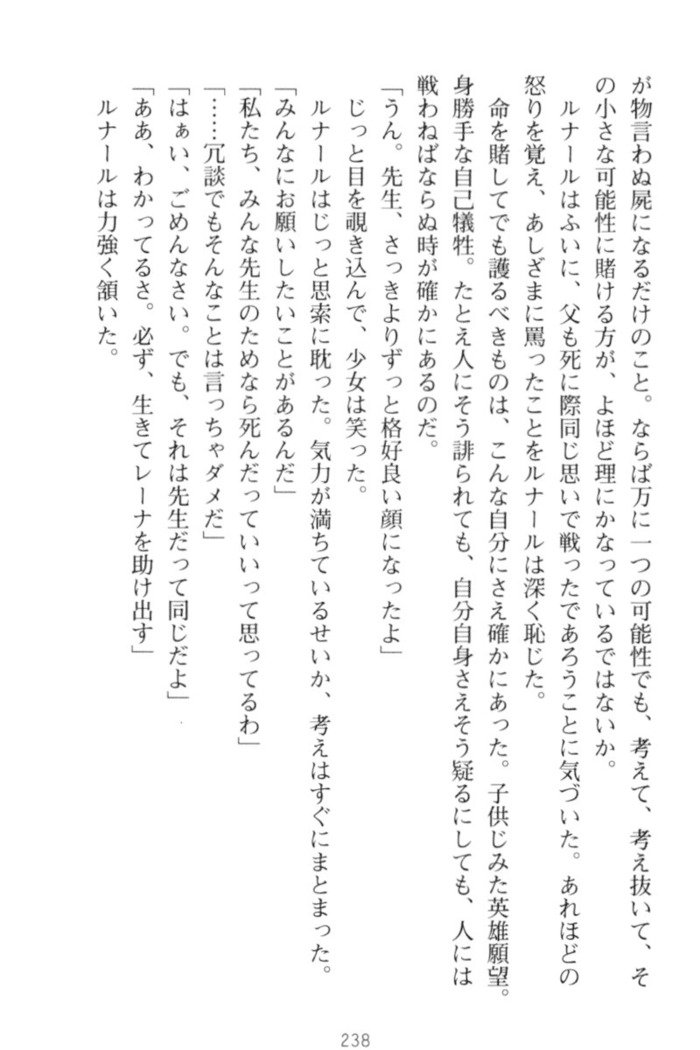 が物言わぬ屍になるだけのこと。ならば万に一つの可能性でも、考えて、考え抜いて、そ
の小さな可能性に賭ける方が、よほど理にかなっているではないか。
　ルナールはふいに、父も死に際同じ思いで戦ったであろうことに気づいた。あれほどの
怒りを覚え、あしざまに罵ったことをルナールは深く恥じた。
　命を賭してでも護るべきものは、こんな自分にさえ確かにあった。子供じみた英雄願望。
身勝手な自己犠牲。たとえ人にそう誹られても、自分自身さえそう疑るにしても、人には
戦わねばならぬ時が確かにあるのだ。
「うん。先生、さっきよりずっと格好良い顔になったよ」
　じっと目を覗き込んで、少女は笑った。
　ルナールはじっと思索に耽った。気力が満ちているせいか、考えはすぐにまとまった。
「みんなにお願いしたいことがあるんだ」
「私たち、みんな先生のためなら死んだっていいって思ってるわ」
「……冗談でもそんなことは言っちゃダメだ」
「はぁい、ごめんなさい。でも、それは先生だって同じだよ」
「ああ、わかってるさ。必ず、生きてレーナを助け出す」
　ルナールは力強く頷いた。
238